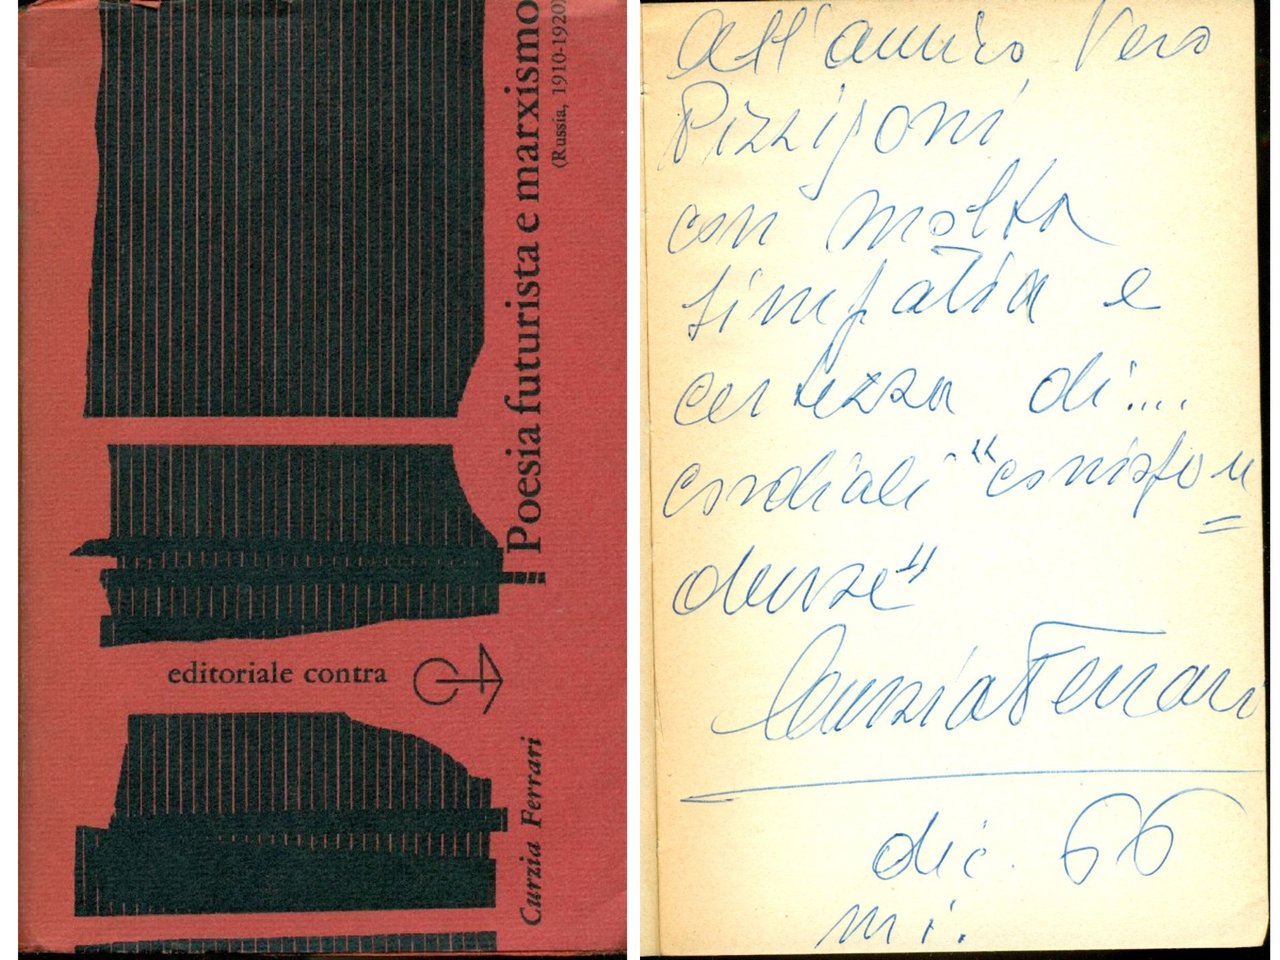 Poesia futurista e marxismo
(Russia, 1910-1920)
editoriale contra
Curzia Ferrari
all'amico Vero
Pizzigoni
con molta
simpatia e
certezza di....
cordiali "corrispon
denze"
Curzia Ferrari
dic. 66
mi.